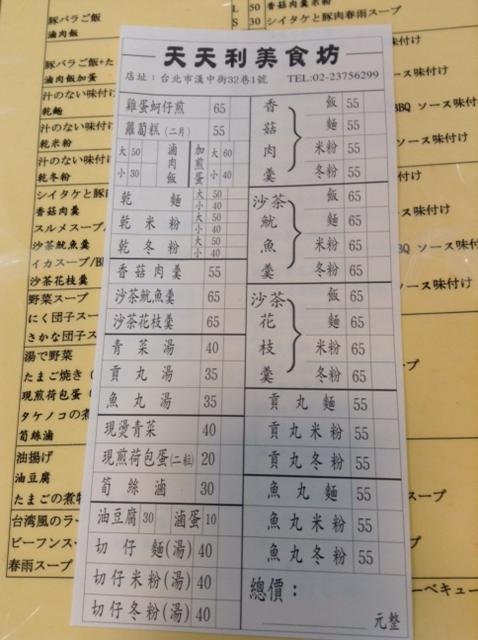 L 50 香菇肉羹米粉
S 30 シイタケと豚肉春雨スープ
豚バラご飯
滷肉飯
豚バラご飯+た
滷肉飯加蛋
汁のない味付け
乾麵
汁のない味付け
乾米粉
汁のない味付け
乾冬粉
シイタケと豚肉
香菇肉羹
スルメスープ/
沙茶魷魚羹
イカスープ/B
沙茶花枝羹
野菜スープ
にく団子ス
さかな団子ス
湯で野菜
たまご焼き (
現煎荷包蛋 (
タケノコの煮
筍絲滷
油揚げ
油豆腐
たまごの煮物
台湾風のラー
ビーフンスー
春雨スープ
天天利美食坊
店址:台北市漢中街32巷1號 TEL:02-23756299
雞蛋蚵仔煎 65
蘿蔔糕(二片) 55
滷肉飯 大 50 小 30
加煎蛋 大 60 小 40
乾麵 大 50 小 40
乾米粉 大 50 小 40
乾冬粉 大 50 小 40
香菇肉羹 55
沙茶魷魚羹 65
沙茶花枝羹 65
青菜湯 40
貢丸湯 35
魚丸湯 35
現燙青菜 40
現煎荷包蛋(二粒) 20
筍絲滷 30
油豆腐 30 滷蛋 10
切仔麵(湯) 40
切仔米粉(湯) 40
切仔冬粉(湯) 40
香菇肉羹
飯 55
麵 55
米粉 55
冬粉 55
沙茶魷魚羹
飯 65
麵 65
米粉 65
冬粉 65
沙茶花枝羹
飯 65
麵 65
米粉 65
冬粉 65
貢丸麵 55
貢丸米粉 55
貢丸冬粉 55
魚丸麵 55
魚丸米粉 55
魚丸冬粉 55
總價:
元整
味付け
BBQ ソース味付け
味付け
味付け
味付け
ソース味付け
ソース味付け
スープ
ープ
ーベキュー